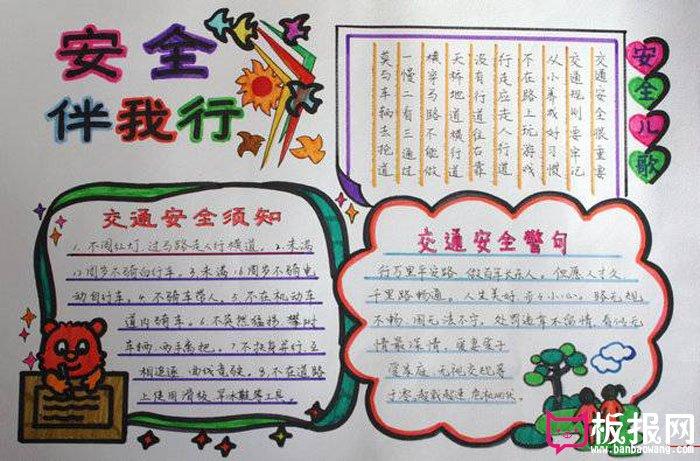 安全
伴我行
安全儿歌
交通安全很重要
交通规则要牢记
从小养成好习惯
不在路上玩游戏
行走应走人行道
没有行道往右靠
天桥地道横行道
横穿马路不能做
一慢二看三通过
莫与车辆去抢道
交通安全须知
1.不闯红灯,过马路走人行横道。2.未满
12周岁不骑自行车。3.未满16周岁不骑电
动自行车。4.不骑车带人。5.不在机动车
道内骑车。6.不突然猛拐 攀附
车辆 两手离把。7.不扶身并行互
相追逐 曲线竞驶。8.不在道路
上使用滑板 旱冰鞋等工具。
交通安全警句
行万里平安路 做百年长在人。但愿人长久
千里路畅通。人生美好 步步小心。路无规
不畅 国无法不宁。处罚违章不留情 看似无
情最深情。
家庭 无视交规
板报网
www.banbaowang.com